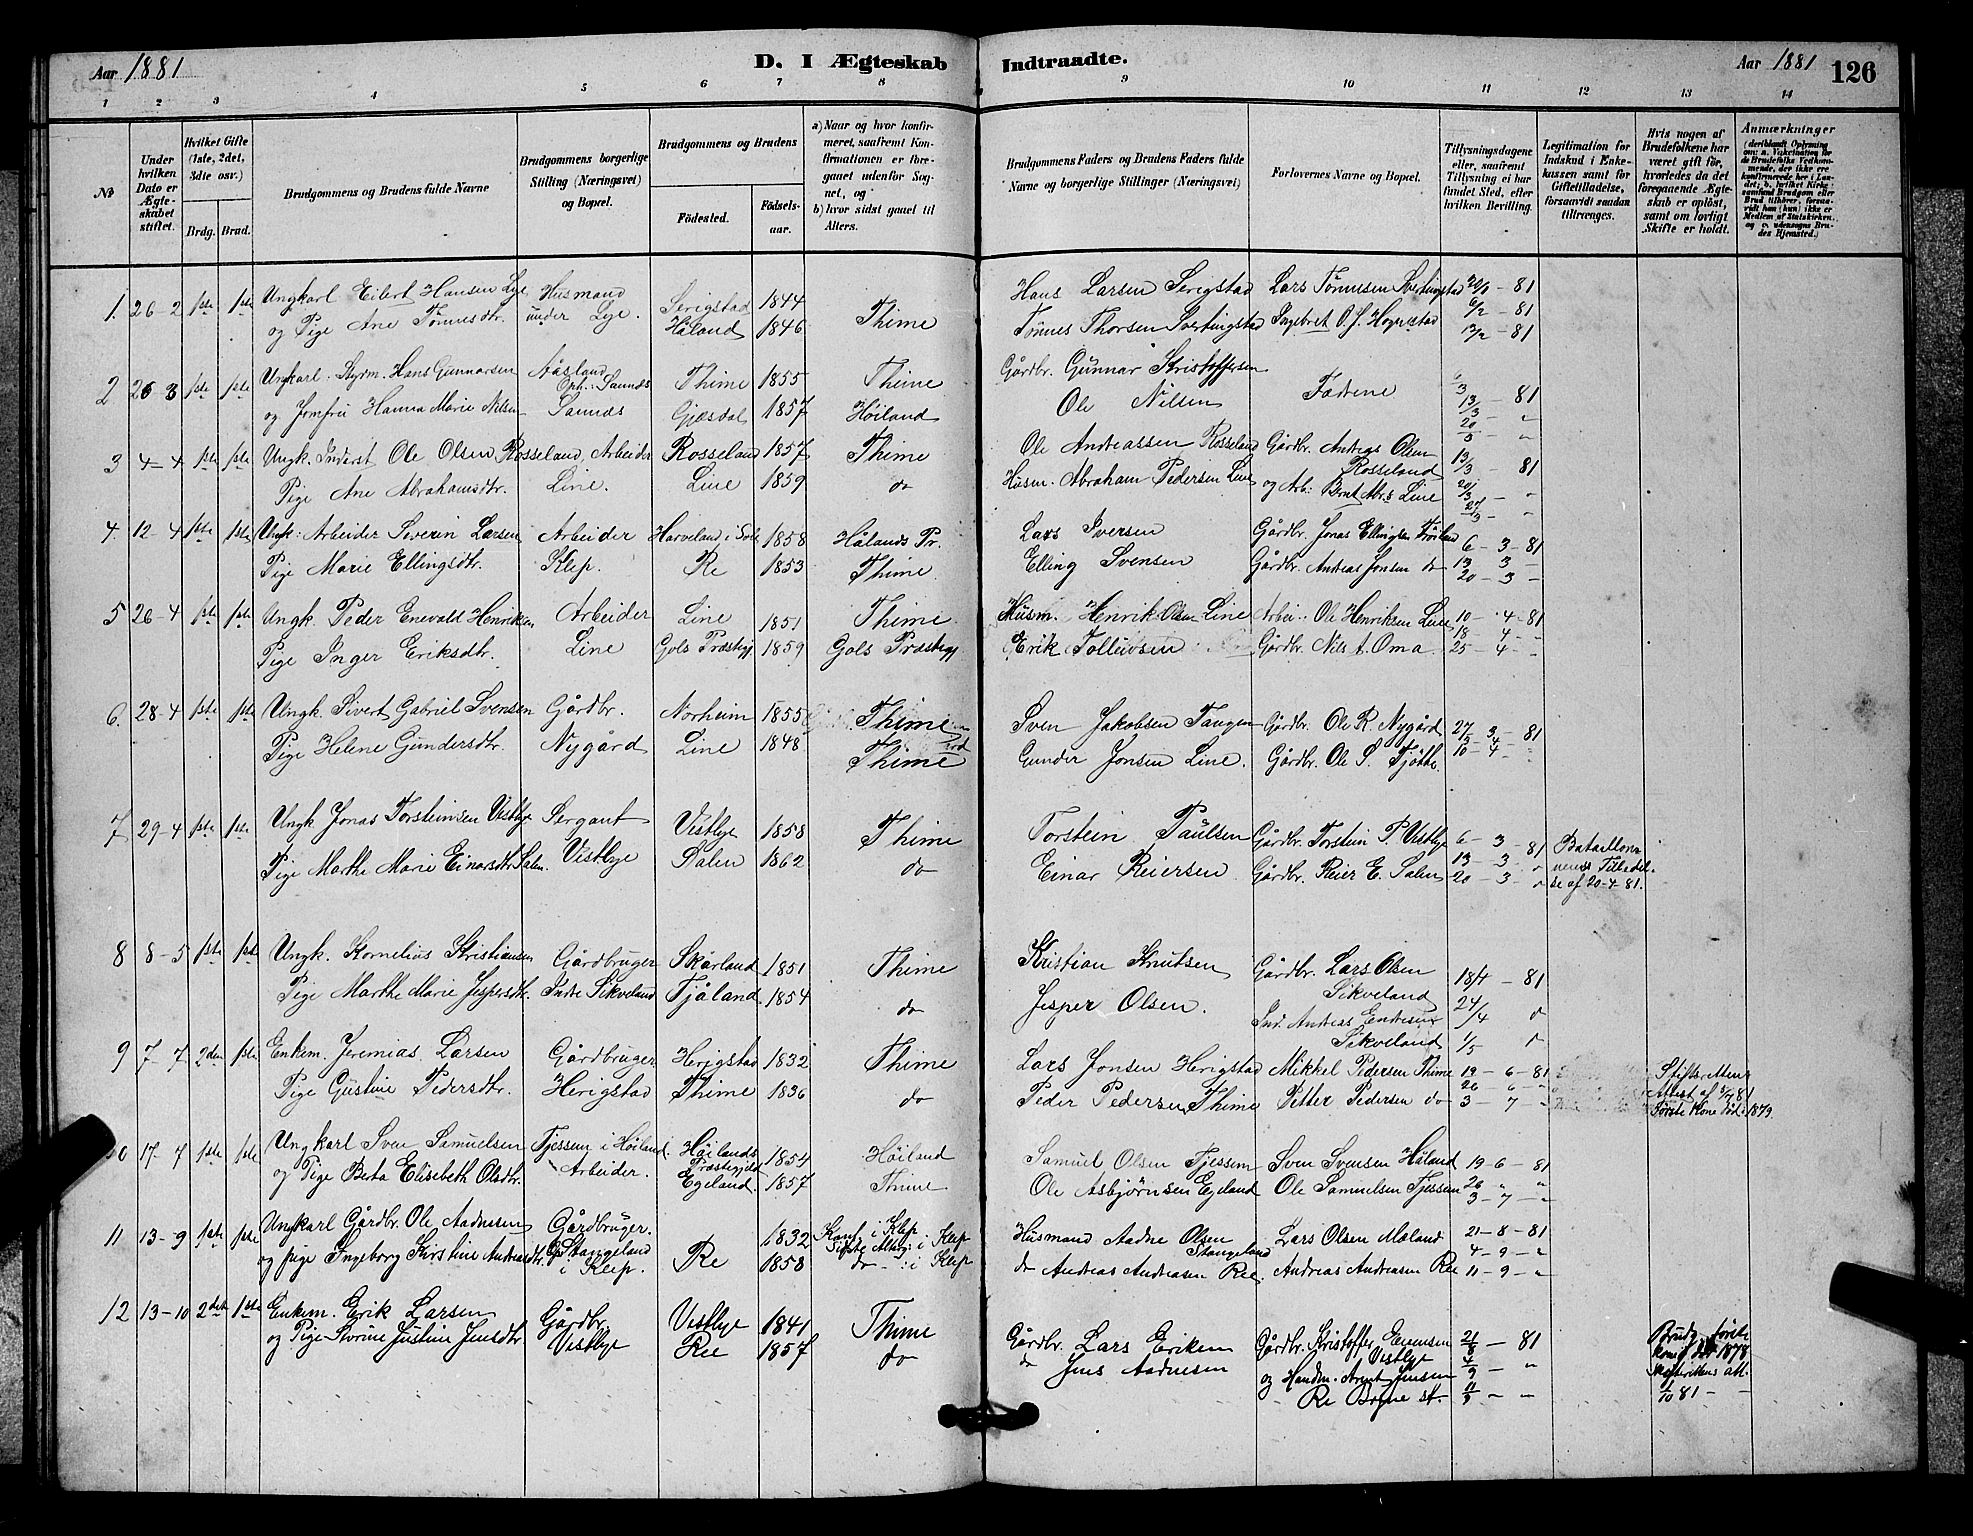 Aar 1881
D. I Ægteskab Indtraadte.
Aar 1881
126
1 2 3 4 5 6 7 8 9 10 11 12 13 14
№
Under hvilken Dato er Ægteskabet stiftet.
Hvilket Gifte (1ste, 2det, 3dte osv.)
Brdg. Brud.
Brudgommens og Brudens fulde Navne
Brudgommens borgerlige Stilling (Næringsvei) og Bopæl.
Brudgommens og Brudens
Födested.
Födselsaar.
a) Naar og hvor konfirmeret, saafremt Konfirmationen er foregaaet udenfor Sognet, og
b) hvor sidst gaaet til Alters.
Brudgommens Faders og Brudens Faders fulde Navne og borgerlige Stillinger (Næringsvei)
Forlovernes Navne og Bopæl.
Tillysningsdagene eller, saafremt Tillysning ei har fundet Sted, efter hvilken Bevilling.
Legitimation for Indskud i Enkekassen samt for Giftetilladelse, forsaavidt saadan tiltrænges.
Hvis nogen af Brudefolkene har været gift för, hvorledes da det foregaaende Ægteskab er oplöst, samt om lovligt Skifte er holdt.
Anmærkninger
1. 26-2 1ste 1ste Ungkarl Eilert Hansen Lye Husmand Serigstad 1844 Hans Larsen Serigstad Lars Tönnesen Svertingstad 30/1 - 81
og Pige Ane Tönnesdtr. under Lye. Håland 1846 Thime Tönnes Thorsen Svertingstad Ingebret O. S. Hognestad 6/2 - 81
13/2 - 81
2 26 3 1ste 1ste Ungkarl. Styrm. Hans Gunnarsen Aasland Thime 1855 Thime Gårdbr. Gunnar Kristoffersen
og Jomfru Hanna Marie Nilsen Oph: Sannes Sannes Gjesdal 1857 Höiland Ole Nilsen Fædrene 6/3 13/3 - 81
20/3 - "
3 4-4 1ste 1ste Ungk. Inderst Ole Olsen Rosseland, Arbeider Rosseland 1857 Thime Ole Andreassen Rosseland Gårdbr. Andreas Olsen Rosseland 13/3 - 81
Pige Ane Abrahamsdtr. Line. Line 1859 do Husm. Abraham Pedersen Line og Arb: Bernt Abr.s Line 20/3 - "
27/3 - "
4. 12-4 1ste 1ste Ungk: Arbeider Severin Larsen Arbeider Harveland i Sole 1858 Hålands Pr. Lars Iversen Gårdbr. Jonas Ellingsen Fröiland 6-3-81
Pige Marie Ellingsdtr. Klep. Re 1853 Thime. Elling Svensen Gårdbr. Andreas Jonsen do 13 3 -
20-3-
5 26-4 1ste 1ste Ungk. Peder Enevald Henriksen Arbeider Line 1851 Thime Husm. Henrik Olsen Line Arbei: Ole Henriksen Line 10-4-81
Pige Inger Eriksdtr. Line Gols Præstegj 1859 Gols Præstegj Erik Tollevsen Gårdbr. Nils A. Oma. 18-4-"
25-4-"
6. 28-4 1ste 1ste Ungk. Sivert Gabriel Svensen Gårdbr. Norheim 1855 Thime Sven Jakobsen Tangen Gårdbr. Ole R. Nygård 27-3-81
Pige Helene Gundersdtr. Nygård Line 1848 Thime Gunder Jonsen Line. Gårdbr. Ole S. Tjötte. 10-4-"
7 29-4 1ste 1ste Ungk Jonas Torsteinsen Vestlye Sergant Vestlye 1858 Thime Torstein Paulsen Gårdbr. Torstein P. Vestlye 6-3-81 Bataillons
Pige Marthe Marie Einarsdtr Salen. Vestlye Salen 1862 do Einar Reiersen Gårdbr. Reier E. Salen 13-3-" Tilladelse
20-3-" af 20-4-81.
8 8-5 1ste 1ste Ungk. Kornelius Kristiansen Gårdbruger Skårland 1851 Thime Kristian Knutsen Gårdbr. Lars Olsen Sikveland 18/4 - 81
Pige Marthe Marie Jespersdtr. Indre Sikveland Tjåland 1854 do Jesper Olsen. Ind. Andreas Endresen Sikveland 24/4 "
1/5 "
9 7-7 2den 1ste Enkem. Jeremias Larsen Gårdbruger Herigstad 1832 Thime Lars Jonsen Herigstad Mikkel Pedersen Thime 19-6-81 Skifteretten
Pige Gustine Pedersdtr. Herigstad Thime 1836 do Peder Pedersen Thime Petter Pedersen do 26-6-" Attest af 5/7 81
3-7-" Förste Kone död 1879.
10 17-7 1ste 1ste Ungkarl Sven Samuelsen Tjessem i Höiland. Höilands Præstegjeld 1854 Höiland Samuel Olsen Tjessem Sven Svensen Håland 19-6-81
og Pige Berta Elisebeth Olsdtr. Arbeider. Egeland. 1857 Thime Ole Asbjörnsen Egeland Ole Samuelsen Tjessem 26 " "
3-7-"
11 13-9 1ste 1ste Ungkarl Gårdbr. Ole Aadnesen Gårdbruger. 1832 Konf. i Klep Sidste Alterg: i Klep Husmand Aadne Olsen Stangeland Lars Olsen Mæland 21-8-81
og pige Ingeborg Kirstine Andreasdtr. Stangeland i Klep. Re 1858 do i Klep do Andreas Andreasen Ree. Andreas Andreasen Ree 4-9-"
11-9-"
12 13-10 2det 1ste Enkem. Erik Larsen Gårdbr. Vestlye 1841 Thime Gårdbr. Lars Eriksen Gårdbr. Kristoffer Evensen Vestlye 21/8 - 81 Brudg. förste
og Pige Jensdtr Vestlye Ree 1857 do do Jens Aadnesen og Handm. Arent Jensen 4/9 - " kone död 1878
Re Bryne st. 11/9 - " Skifterettens att. /10 81 -